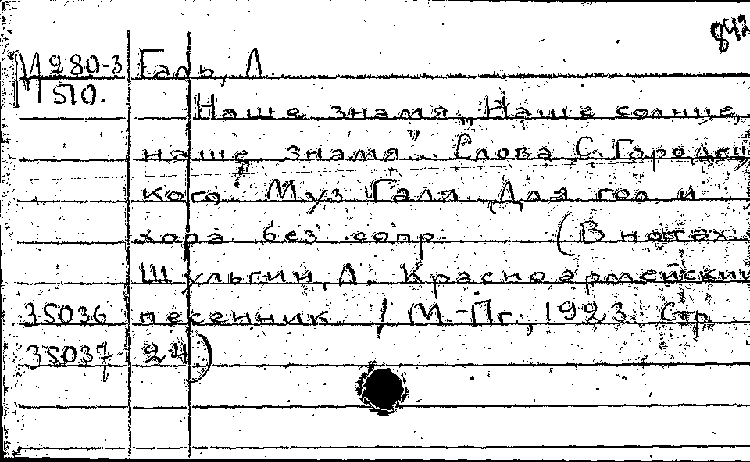 842
М 280-3 Галь, Л.
510.
Наше знамя „Наше солнце,
наше знамя". Слова С. Городец
кого. Муз Галя. Для гол и
хора без сопр. (В нотах
Шульгин, Л. Красноармейский
35036 песенник. / М.-Пг., 1923. Стр
35037 24)